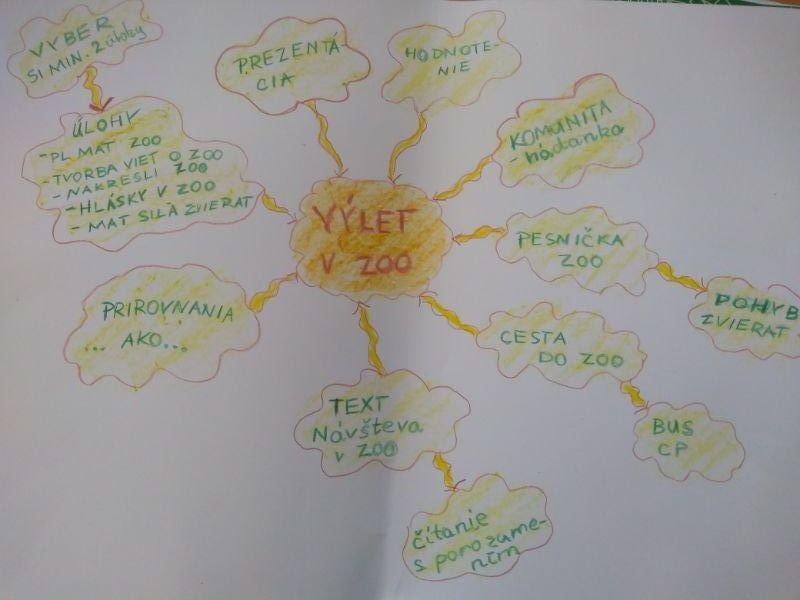 VYBER
SI MIN. 2 úlohy
ÚLOHY
- PL MAT ZOO
- TVORBA VIET O ZOO
- NAKRESLI ZOO
- HLÁSKY V ZOO
- MAT SILA ZVIERAT
PREZENTÁ-
CIA
HODNOTE-
NIE
KOMUNITA
- hádanka
VÝLET
V ZOO
PESNIČKA
ZOO
POHYB
ZVIERAT
PRIROVNANIA
... AKO...
CESTA
DO ZOO
BUS
CP
TEXT
Návšteva
v ZOO
čítanie
s porozume-
ním